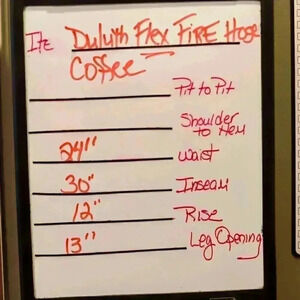 Ite Duluth Flex FIRE Hose
Coffee
Pit to Pit
Shoulder
to Hem
24" Waist
30" Inseam
12" Rise
13" Leg Opening